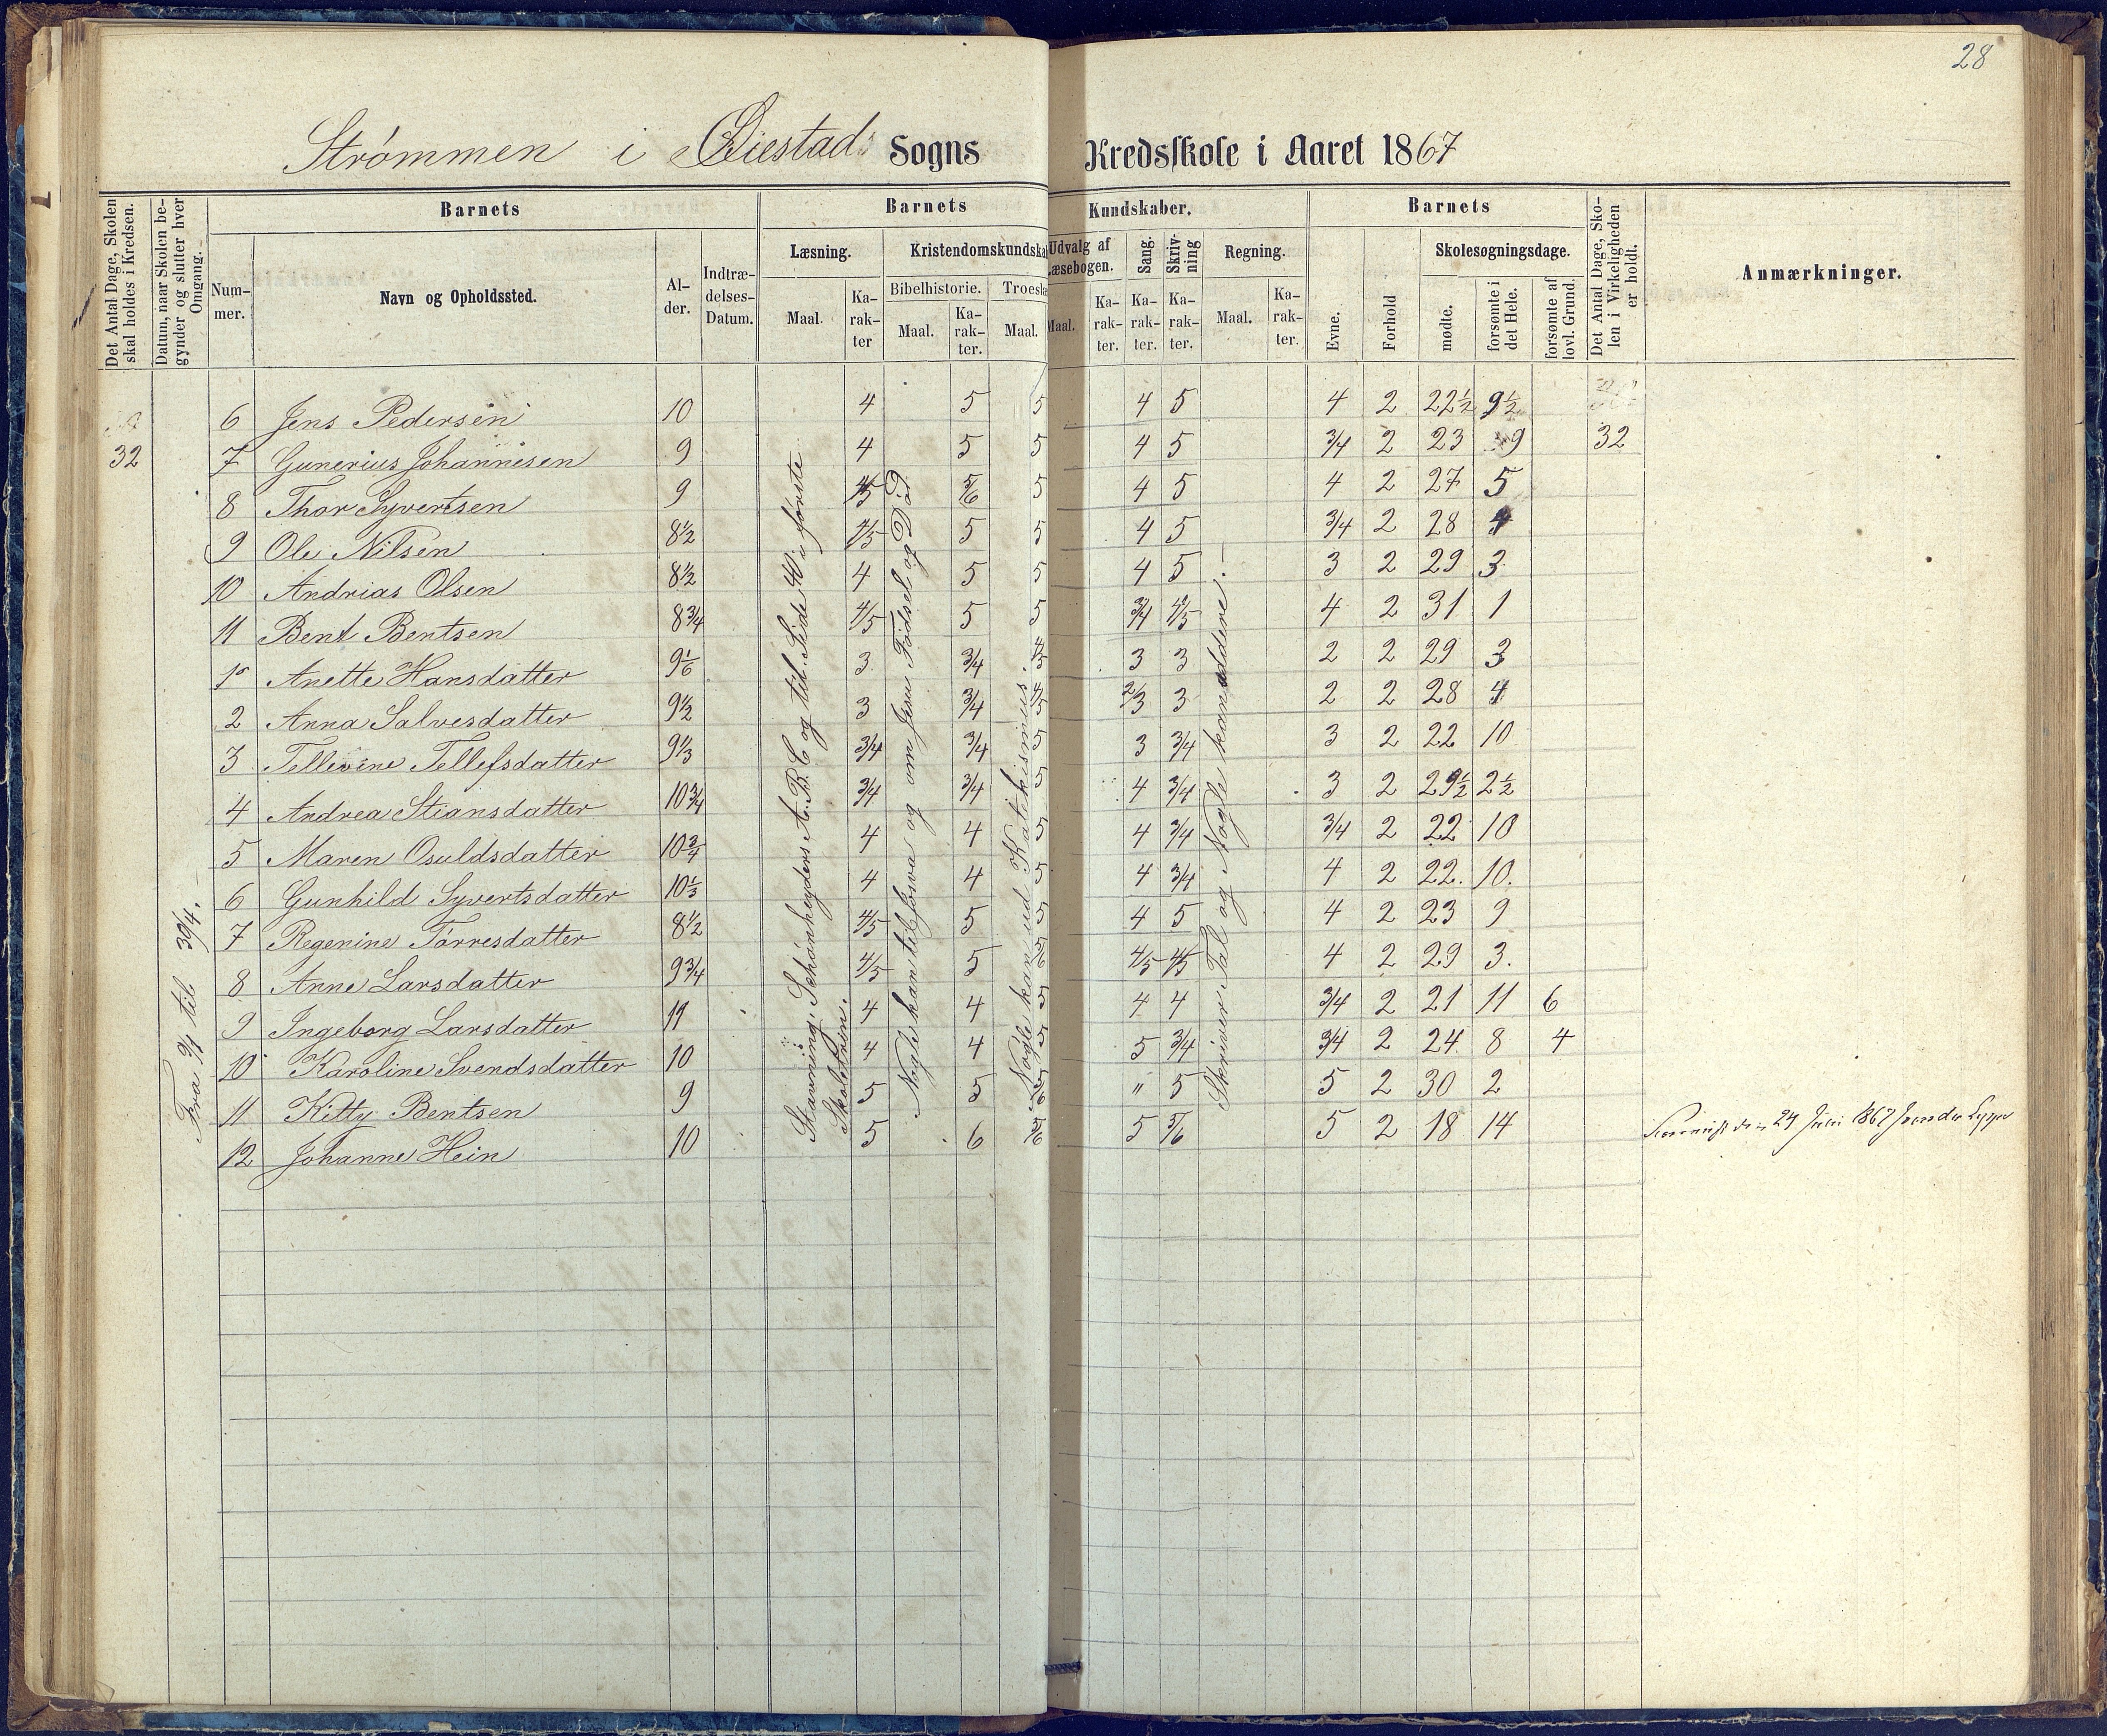 28
Strømmen i Øiestads Sogns Kredsskole i Aaret 1867
Det Antal Dage, Skolen skal holdes i Kredsen.
Datum, naar Skolen begynder og slutter hver Omgang.
Barnets
Nummer.
Navn og Opholdssted.
Alder.
Indtrædelses-Datum.
Barnets Kundskaber.
Læsning.
Maal.
Karakter
Kristendomskundskab
Bibelhistorie.
Maal.
Karakter.
Troeslæ
Maal.
Udvalg af Læsebogen.
Maal.
Karakter.
Sang.
Karakter.
Skrivning
Karakter.
Regning.
Maal.
Karakter.
Barnets
Evne.
Forhold
Skolesøgningsdage.
mødte.
forsømte i det Hele.
forsømte af lovl. Grund.
Det Antal Dage, Skolen i Virkeligheden er holdt.
Anmærkninger.
6 Jens Pedersen 10 4 5 5 4 5 4 2 22½ 9½
32 7 Gunerius Johannesen 9 4 5 5 4 5 3/4 2 23 9 32
8 Thor Syvertsen 9 4/5 5/6 5 4 5 4 2 27 5
9 Ole Nilsen 8½ 4/5 5 5 4 5 3/4 2 28 4
10 Andrias Olsen 8½ 4 5 5 4 5 3 2 29 3
11 Bent Bentsen 8¾ 4/5 5 5 3/4 4/5 4 2 31 1
1 Anette Hansdatter 9 1/6 3 3/4 4/5 3 3 2 2 29 3
2 Anna Salvesdatter 9½ 3 3/4 4/5 2/3 3 2 2 28 4
3 Tellevine Tellefsdatter 9⅓ 3/4 3/4 5 3 3/4 3 2 22 10
4 Andrea Stiansdatter 10¾ 3/4 3/4 5 4 3/4 3 2 29½ 2½
5 Maren Osuldsdatter 10¾ 4 4 5 4 3/4 3/4 2 22 10
6 Gunhild Syvertsdatter 10⅓ 4 4 5 4 3/4 4 2 22. 10.
7 Regenine Tørresdatter 8½ 4/5 5 5 4 5 4 2 23 9
8 Anne Larsdatter 9¾ 4/5 5 5/6 4/5 4/5 4 2 29 3.
9 Ingeborg Larsdatter 11 4 4 5 4 4 3/4 2 21 11 6
10 Karoline Svendsdatter 10 4 4 5 5 3/4 3/4 2 24 8 4
11 Kitty Bentsen 9 5 5 5/6 " 5 5 2 30 2
12 Johanne Hein 10 5 6 5/6 5 5/6 5 2 18 14
Fra 2/4 til 30/4.
Stavning: Schønheyders A.B.C og til Side 40 i første
Skoletrin.
Nogle kan til Esva og om Jesu Fødsel og Død
Nogle kan ud Katekismus.
Skriver Tal og Nogle kan addere.
24 Juni 1867